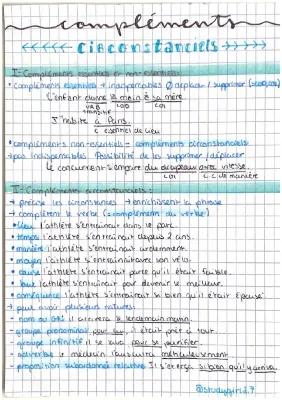 compléments
circonstanciels
I - Compléments essentiels et non-essentiels :
• compléments essentiels = indispensables ∅ déplacer / supprimer
L'enfant donne la main à sa mère.
VRB COD COI
transitif
J'habite à Paris.
C. essentiel de lieu
• compléments non-essentiels = compléments circonstanciels
pas indispensables Possibilité de les supprimer / déplacer
le concurrent s'empare du drapeau avec vitesse.
COI C.C. de manière
II - Compléments circonstanciels :
→ précise les circonstances → enrichissent la phrase
→ complètent le verbe (= complément du verbe)
• lieu l'athlète s'entrainait dans le parc.
• temps l'athlète s'entrainait depuis 2 ans.
• manière l'athlète s'entrainait ardemment.
• moyen l'athlète s'entrainait avec son vélo.
• cause l'athlète s'entrainait parce qu'il était faible.
• but l'athlète s'entrainait pour devenir le meilleur.
• conséquence l'athlète s'entrainait si bien qu'il était épuisé.
→ peut avoir plusieurs natures :
- nom ou GN : il arrivera le lendemain matin.
- groupe pronominal pour lui, il était prêt à tout.
- groupe infinitif il se lava pour se purifier.
- adverbe le médecin l'ausculta méticuleusement
- proposition subordonnée relative Il s'exerça si bien qu'il y arriva.